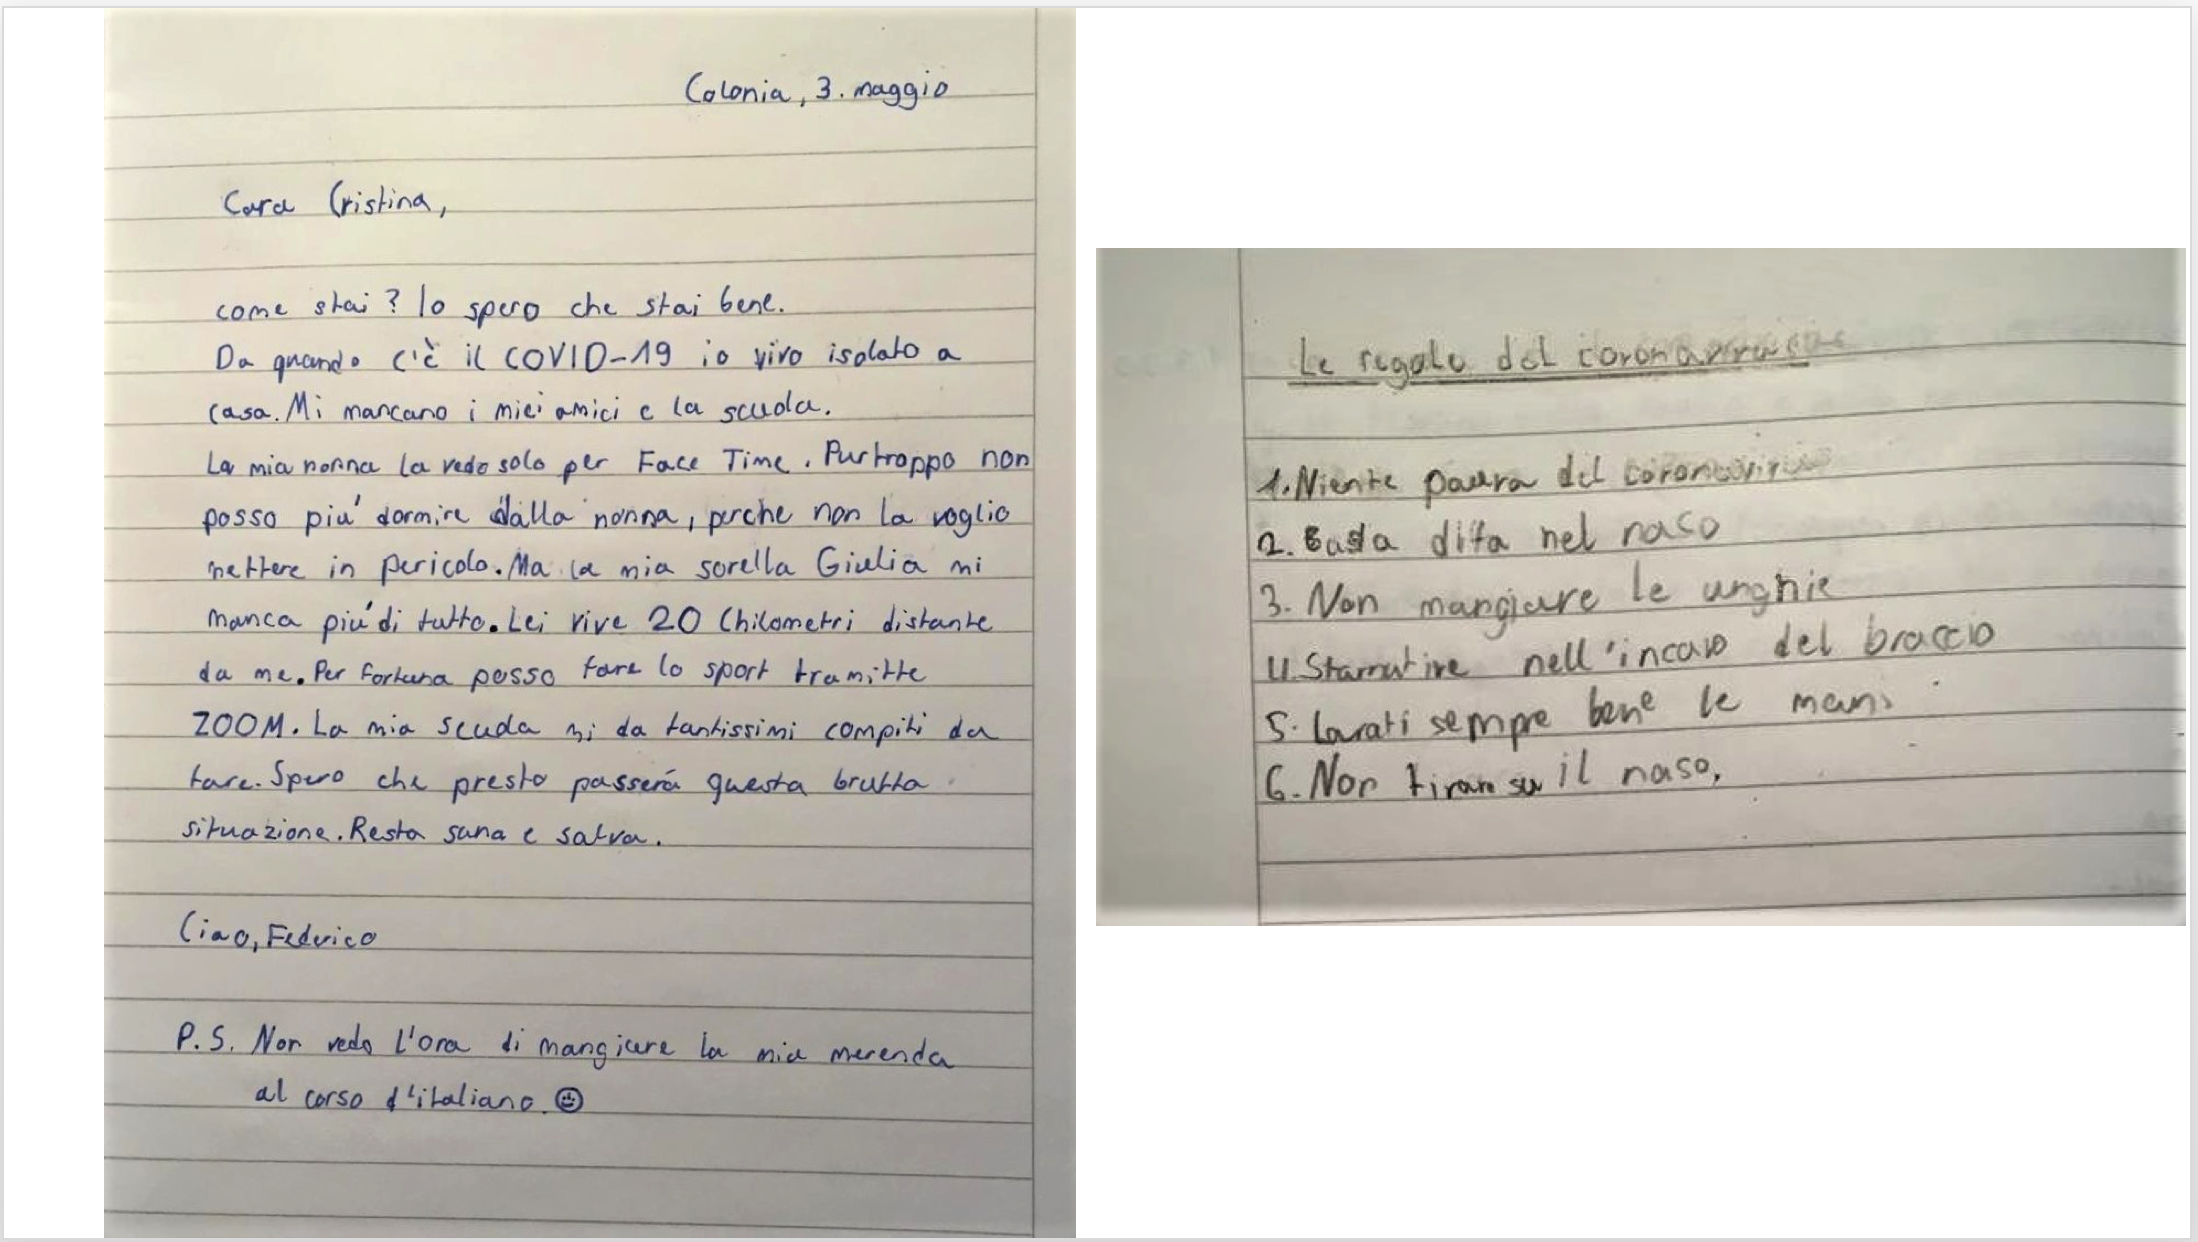 Colonia, 3. maggio
Cara Cristina,
come stai? Io spero che stai bene.
Da quando c'è il COVID-19 io vivo isolato a
casa. Mi mancano i miei amici e la scuola.
La mia nonna la vedo solo per Face Time. Purtroppo non
posso piu' dormire dalla nonna, perche non la voglio
mettere in pericolo. Ma la mia sorella Giulia mi
manca piu' di tutto. Lei vive 20 Chilometri distante
da me. Per fortuna posso fare lo sport tramitte
ZOOM. La mia scuola mi da tantissimi compiti da
fare. Spero che presto passerá questa brutta
situazione. Resta sana e salva.
Ciao, Federico
P.S. Non vedo l'ora di mangiare la mia merenda
al corso d'italiano. ☺
Le regole del coronavirus
1. Niente paura del coronavirus
2. Basta dita nel naso
3. Non mangiare le unghie
4. Starnutire nell'incavo del braccio
5. Lavati sempre bene le mani
6. Non tirare su il naso.